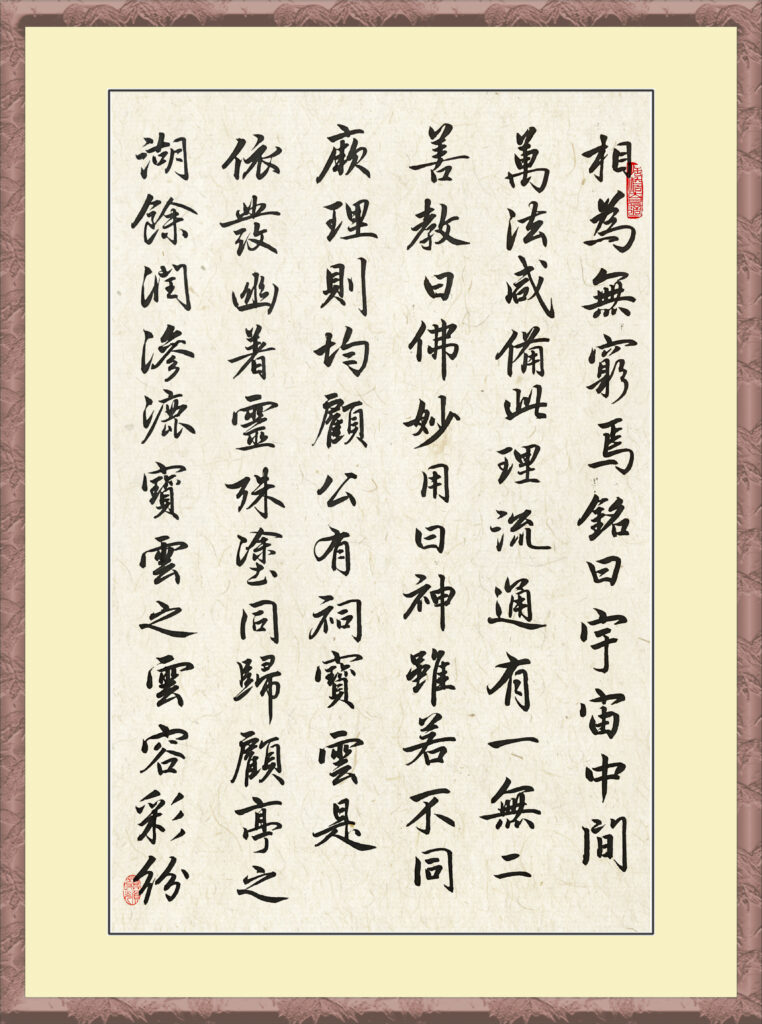 相為無窮焉銘曰宇宙中間
萬法咸備此理流通有一無二
善教曰佛妙用曰神雖若不同
厥理則均顧公有祠寶雲是
依發幽著靈殊塗同歸顧亭之
湖餘潤滲漉寶雲之雲容彩紛